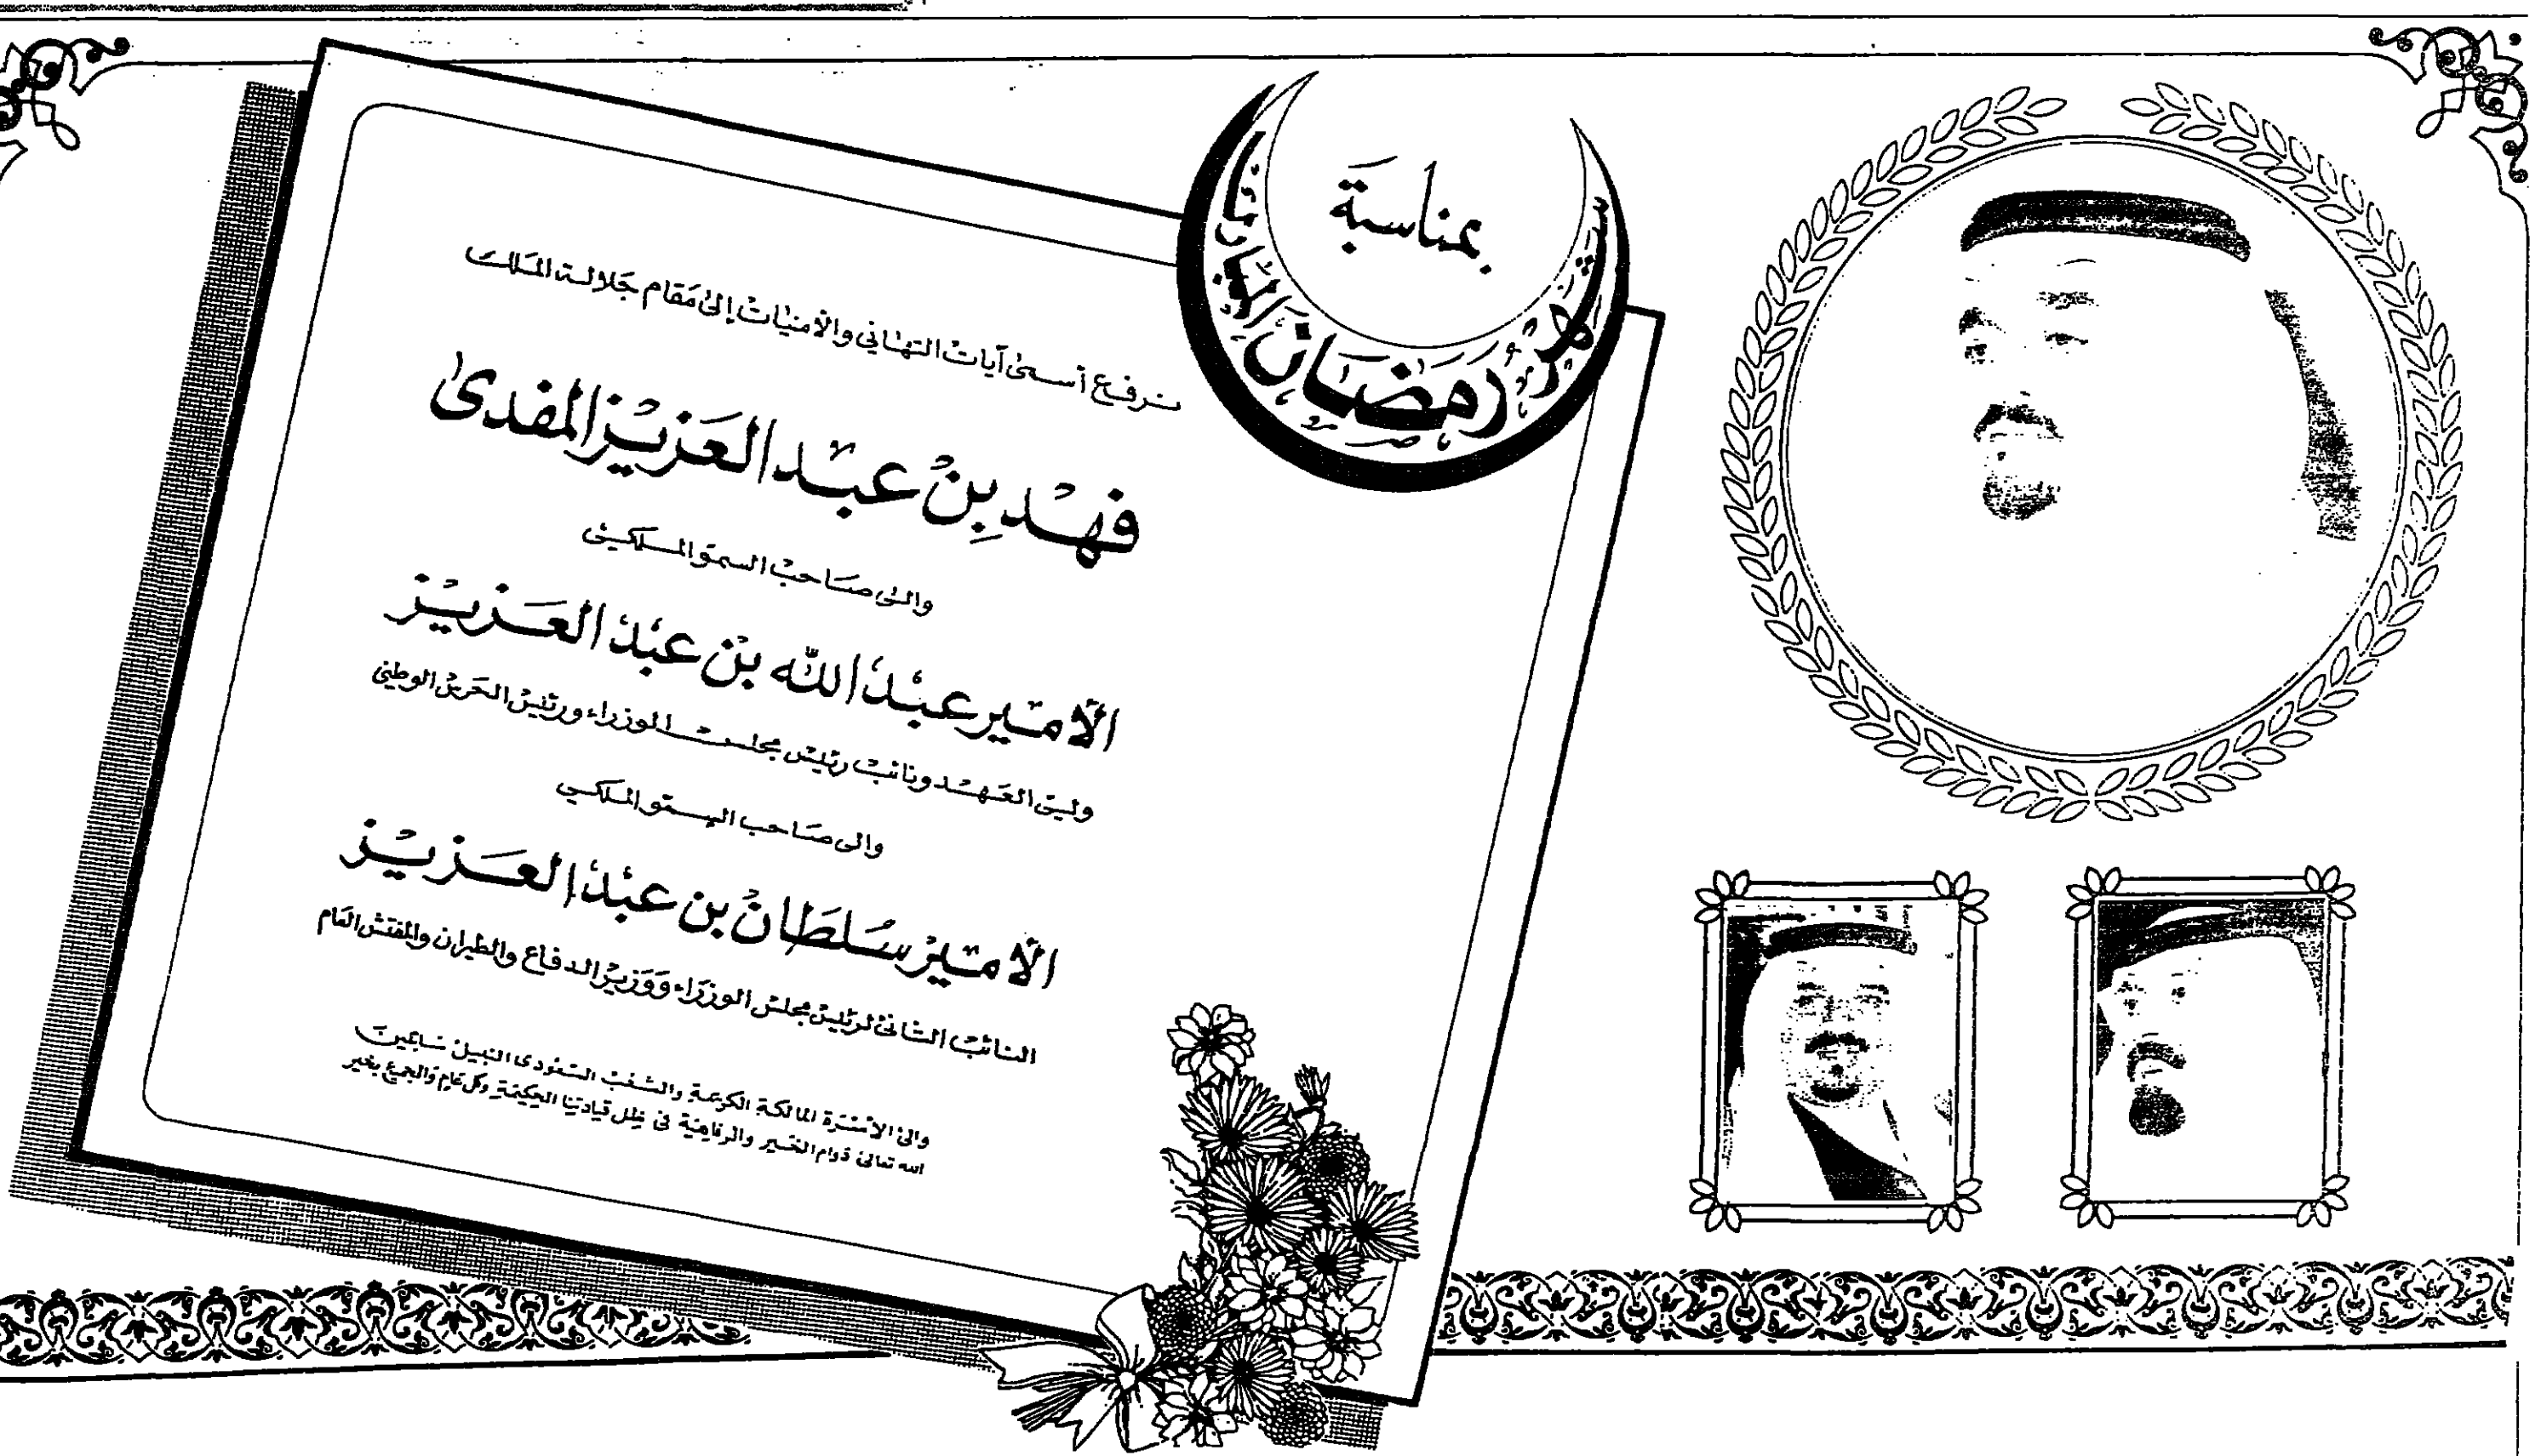 بمناسبة
شهر رمضان المبارك
نرفع أسمى آيات التهاني والأمنيات إلى مقام جلالة الملك
فهد بن عبد العزيز المفدى
والى صاحب السمو الملكي
الأمير عبد الله بن عبد العزيز
ولي العهد ونائب رئيس مجلس الوزراء ورئيس الحرس الوطني
والى صاحب السمو الملكي
الأمير سلطان بن عبد العزيز
النائب الثاني لرئيس مجلس الوزراء ووزير الدفاع والطيران والمفتش العام
والى الأسرة المالكة الكريمة والشعب السعودى النبيل سائلين
الله تعالى دوام الخير والرفاهية في ظل قيادتنا الحكيمة وكل عام والجميع بخير